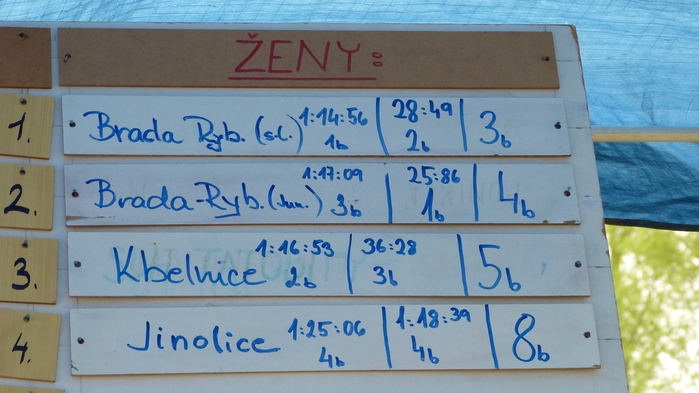 ŽENY:
1. Brada Ryb. (sl.) 1:14:56 28:49 3b
1b 2b
2. Brada-Ryb. (Jun.) 1:17:09 25:86 4b
3b 1b
3. Kbelnice 1:16:53 36:28 5b
2b 3b
4. Jinolice 1:25:06 1:18:39 8b
4b 4b